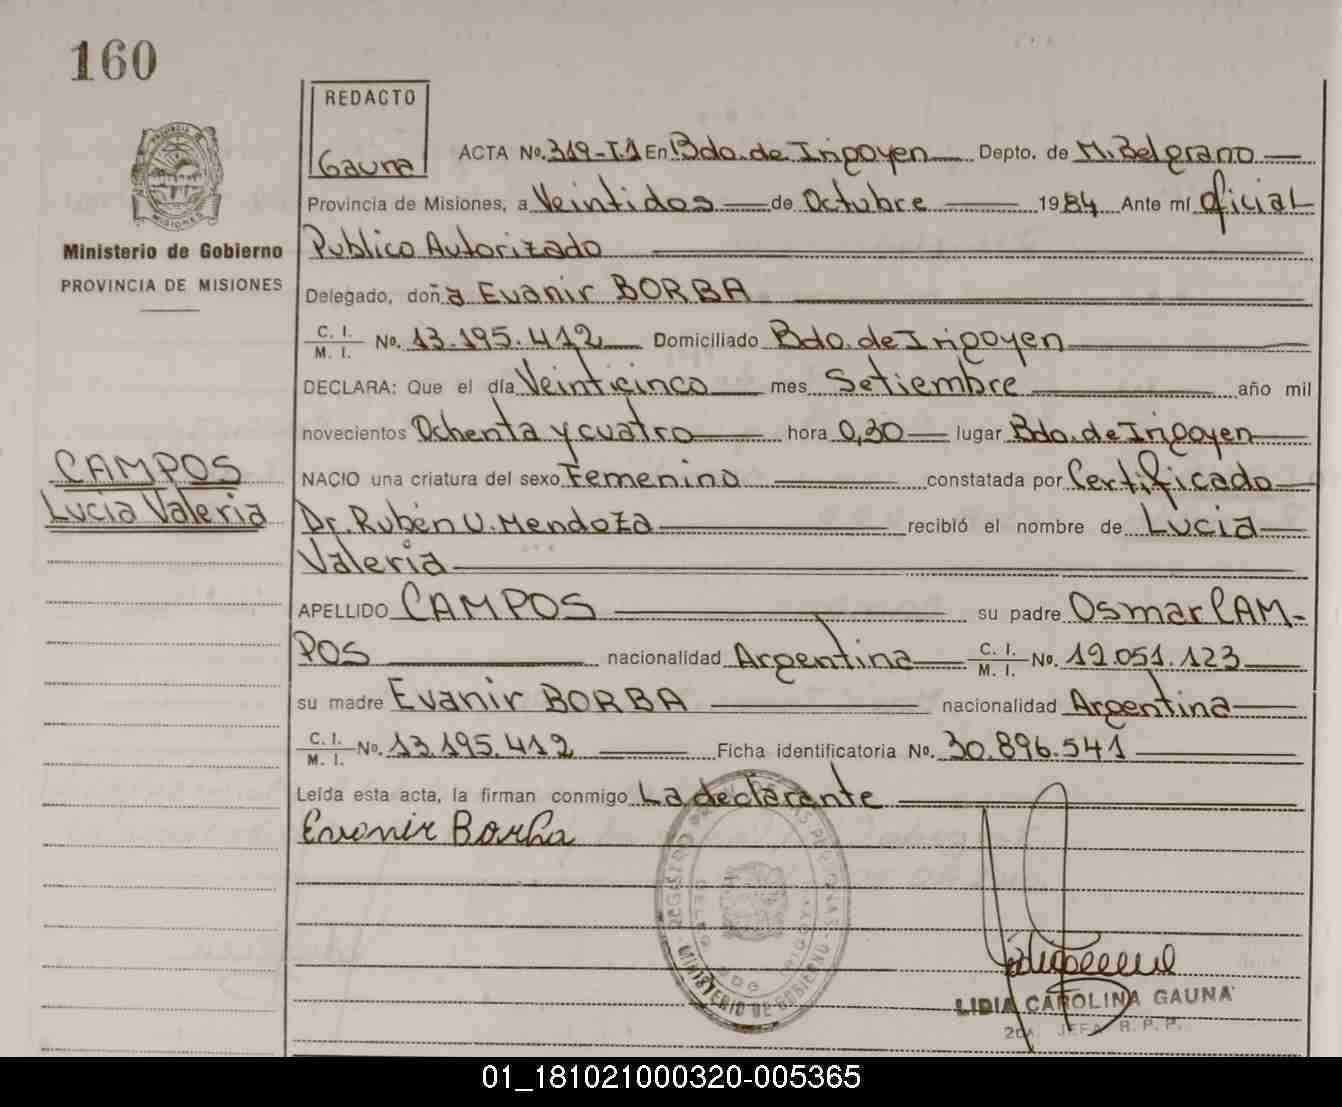 160
REDACTO
Gauna
ACTA No. 319-T1 En Bdo. de Irigoyen Depto. de M. Belgrano
Provincia de Misiones, a Veintidos de Octubre 1984 Ante mí Oficial
Publico Autorizado
Ministerio de Gobierno
PROVINCIA DE MISIONES
Delegado, doña Evanir BORBA
C. I.
M. I. No. 13.195.412 Domiciliado Bdo. de Irigoyen
DECLARA: Que el día Veinticinco mes Setiembre año mil
novecientos Ochenta y cuatro hora 0,30 lugar Bdo. de Irigoyen
CAMPOS
Lucia Valeria
NACIO una criatura del sexo Femenino constatada por Certificado
Dr. Rubén U. Mendoza recibió el nombre de Lucia
Valeria
APELLIDO CAMPOS su padre Osmar CAM-
POS nacionalidad Argentina C. I. M. I. No. 12.051.123
su madre Evanir BORBA nacionalidad Argentina
C. I.
M. I. No. 13.195.412 Ficha identificatoria No. 30.896.541
Leída esta acta, la firman conmigo La declarante
Evanir Borba
MINISTERIO DE GOBIERNO
LIDIA CAROLINA GAUNA
2da. JEFA R. P. P.
01_181021000320-005365